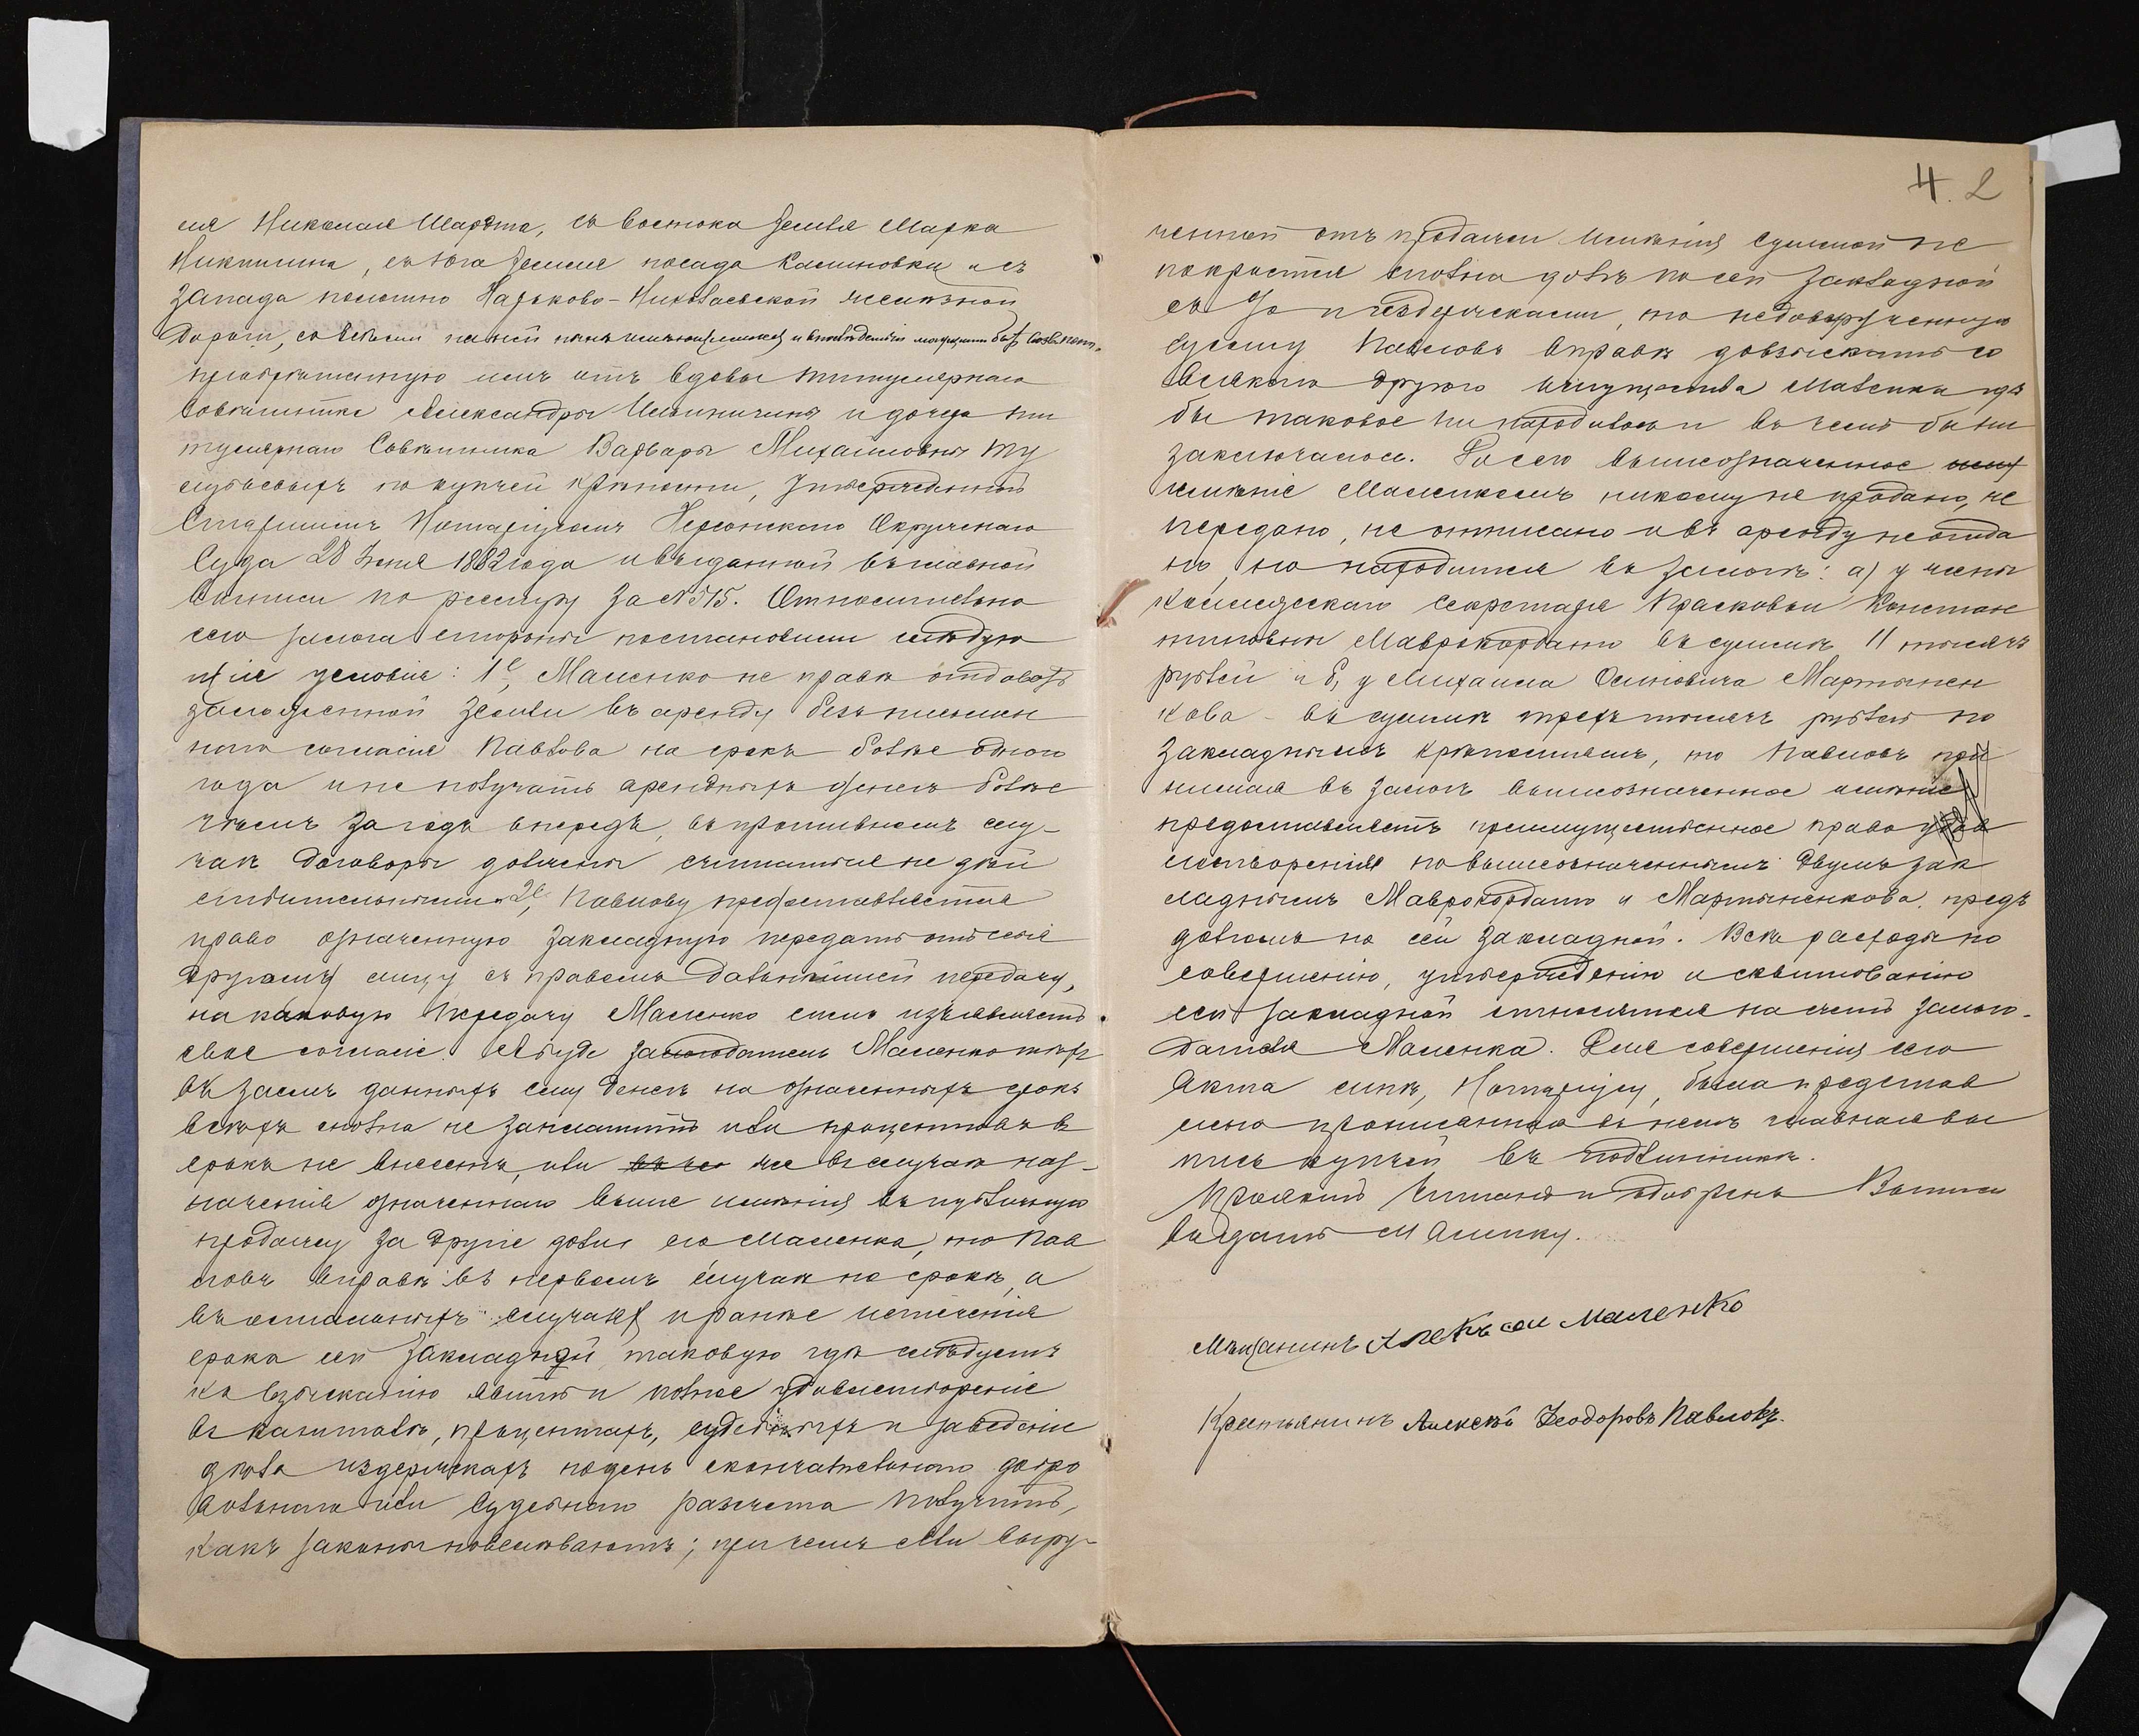 ля Николая Шардта, съ Востока Земля Марка
Никитина, съ Юга Земля посада Калиновки и съ
Запада полотно Харьково-Николаевской железной
дороги, со всеми на ней ныне
приобретенную имъ отъ вдовы титулярнаго
Советника Александры Ильиничины и дочери ти
тулярнаго Советника Варвары Михайловны
по купчей крепости, утвержденной
Старшимъ Нотаріусомъ Херсонскаго Окружнаго
Суда 28 Іюня 1882 года и выданной въ главной
выписи по реестру за № 515. Относительно
сего залога стороны постановили следую
щія условія: 1е, Маленко не вправе отдавать
заложенной Земли въ аренду безъ письмен
наго согласія Павлова на срокъ более одного
года и не получать арендныхъ денегъ более
чемъ за годъ впередъ, въ противномъ слу-
чае договоры должны считаться не дей
ствительными и 2е, Павлову предоставляется
право означенную закладную передать отъ себя
другому лицу съ правомъ дальнейшей передачи,
на каковую передачу Маленко симъ изъявляетъ
свое согласіе. А буде залогодатель Маленко техъ
въ заемъ данныхъ ему денегъ на означенныхъ срокъ
всехъ сполна не заплатитъ или процентовъ въ
срокъ не внесетъ, или въ случае наз-
наченія означеннаго выше именія въ публичную
продажу за другіе долги его Маленка, то Пав
ловъ вправе въ первомъ случае по сроке, а
въ остальныхъ случаяхъ и ранее истеченія
срока сей закладной таковую где следуетъ
ко взысканію явить и полное удовлетвореніе
въ капитале, процентахъ, судебныхъ и за веденіе
дела издержкахъ по день окончательнаго добро
вольнаго или Судебнаго разсчета получить,
какъ законы повелеваютъ; при чемъ если выру-
4. 2
ченной отъ продажи именія суммой не
покроется сполна долгъ по сей Закладной
съ % и издержками, то недовырученную
сумму Павловъ вправе довзыскать со
всякаго другого имущества Маленки где
бы таковое ни находилось и въ чемъ бы ни
заключалось. До сего вышеозначенное
именіе Маленкомъ никому не продано, не
передано, не отписано и въ аренду не отда
но, но находится въ залоге: а) у жены
Коллежскаго Секретаря Прасковьи Констан
тиновны Маврокордато въ сумме 11 тысячъ
рублей и б, у Михаила Осиповича Мартынен
кова - въ сумме трехъ тысячъ рублей по
закладнымъ крепостямъ, то Павловъ при
нимая въ залогъ вышеозначенное именіе
предоставляетъ преимущественное право удов
летворенія по вышеозначеннымъ двумъ зак
ладнымъ Маврокордато и Мартыненкова предъ
долгомъ по сей закладной. Все расходы по
совершенію, утвержденію и сквитованію
сей закладной относятся на счетъ залого-
дателя Маленка. Для совершенія сего
Акта мне, Нотаріусу, была представ
лена прописанная въ немъ главная вы
пись купчей въ подлиннике.
Проектъ читанъ и одобренъ Выпись
выдать Маленку.
Мещанинъ Алексей Маленко
Крестьянинъ Алексей Ѳеодоровъ Павловъ.